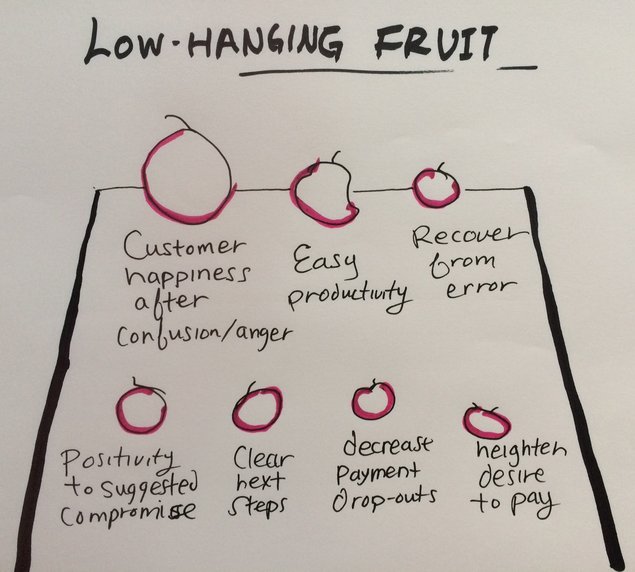 LOW-HANGING FRUIT
Customer
happiness
after
confusion/anger
Easy
productivity
Recover
from
error
Positivity
to suggested
compromise
Clear
next
steps
decrease
Payment
drop-outs
heighten
desire
to pay